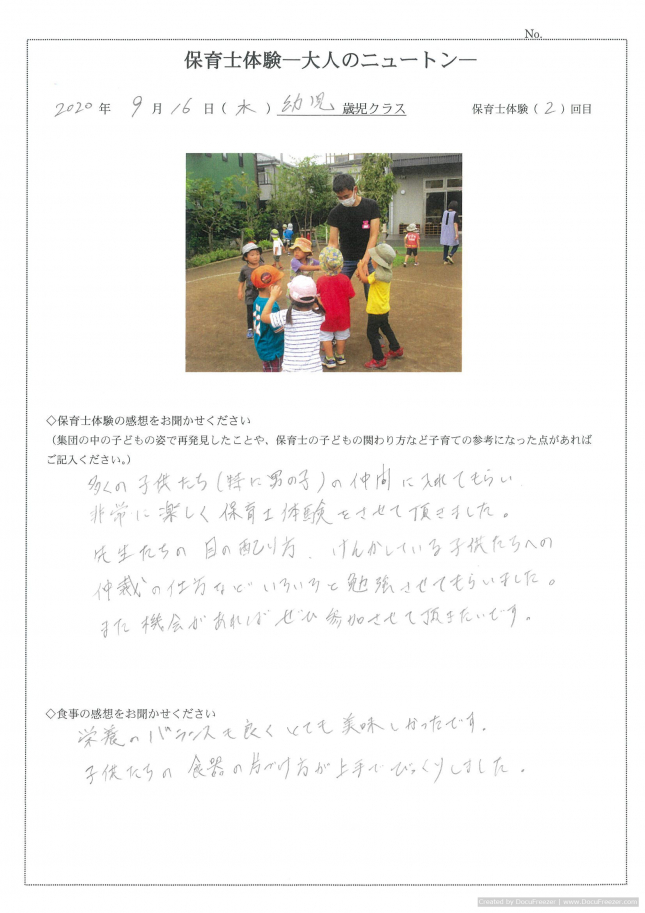 No.
保育士体験―大人のニュートン―
2020年 9月16日(水) 幼児 歳児クラス 保育士体験(2)回目
◇保育士体験の感想をお聞かせください
(集団の中の子どもの姿で再発見したことや、保育士の子どもの関わり方など子育ての参考になった点があれば
ご記入ください。)
多くの子供たち(特に男の子)の仲間に入れてもらい
非常に楽しく保育士体験をさせて頂きました。
先生たちの目の配り方、けんかしている子供たちへの
仲裁の仕方などいろいろと勉強させてもらいました。
また機会があればぜひ参加させて頂きたいです。
◇食事の感想をお聞かせください
栄養のバランスも良くとても美味しかったです。
子供たちの食器の片づけ方が上手でびっくりしました。
Created by DocuFreezer | www.DocuFreezer.com